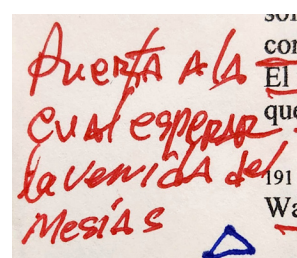 Puerta a la
cual esperar
la venida del
Mesías
con
El
que
191
Wa